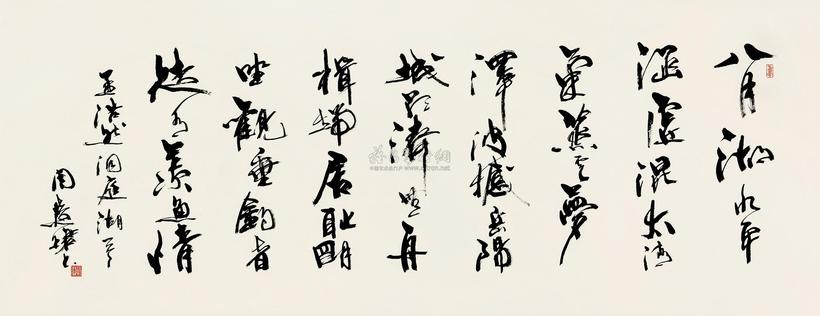 八月湖水平
涵虛混太清
氣蒸云夢
澤波撼岳陽
城欲濟無舟
楫端居耻聖明
坐觀垂釣者
徒有羨魚情
孟浩然洞庭湖
周慧珺書